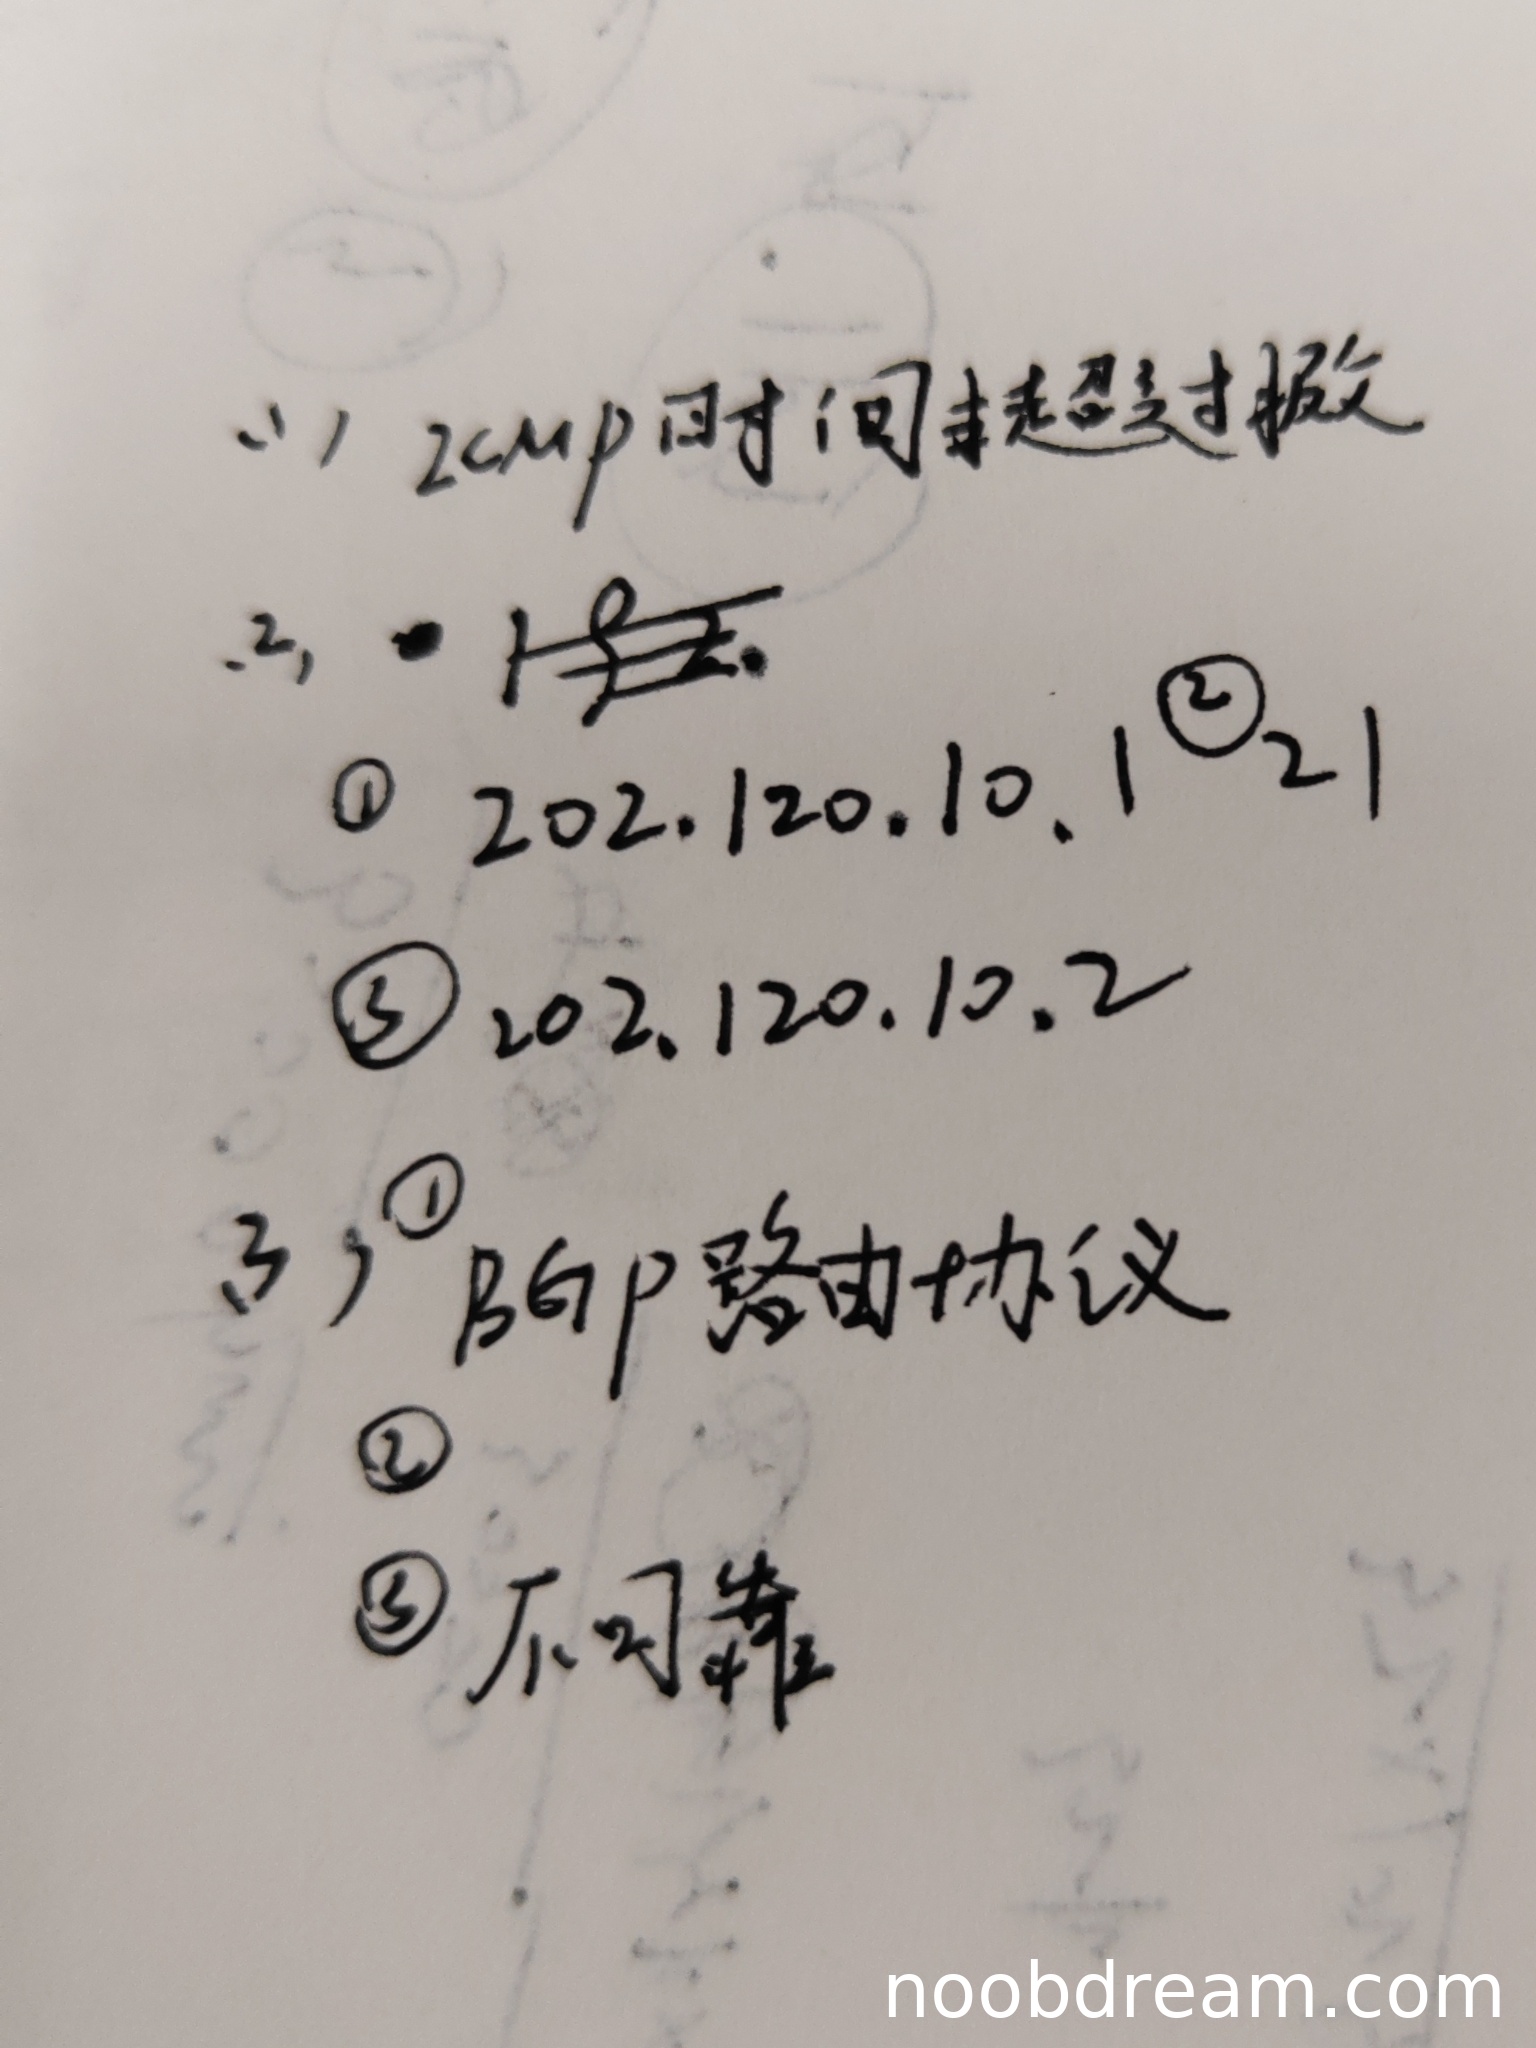 (1) ICMP时间超过报文
(2)
① 202.120.10.1 ② 21
③ 202.120.10.2
3, ① BGP路由协议
②
③ 不可靠
noobdream.com